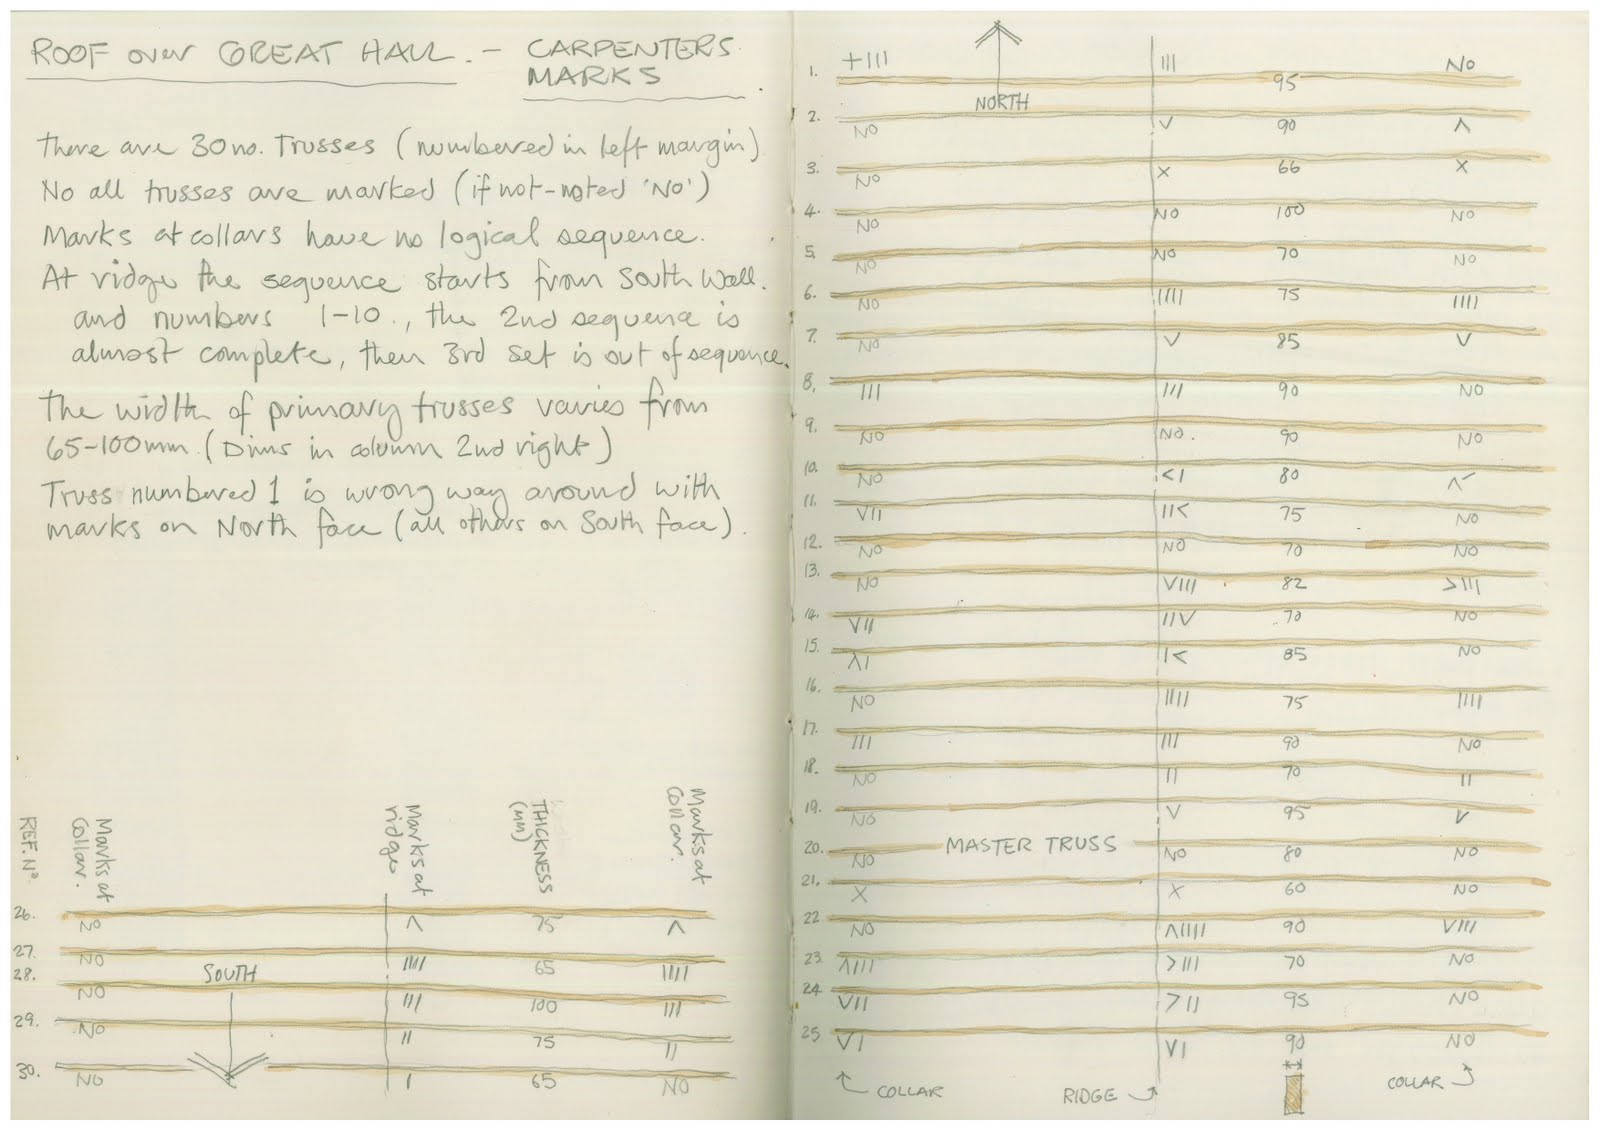 ROOF over GREAT HALL. - CARPENTERS
MARKS
There are 30no. Trusses (numbered in left margin)
No all trusses are marked (if not-noted 'No')
Marks at collars have no logical sequence.
At ridge the sequence starts from South Wall.
and numbers 1-10., the 2nd sequence is
almost complete, then 3rd set is out of sequence.
The width of primary trusses varies from
65-100mm. (Dims in column 2nd right)
Truss numbered 1 is wrong way around with
marks on North face (all others on South face).
REF. Nº
Marks at Collar.
Marks at ridge
THICKNESS (MM)
Marks at Collar.
26. NO Λ 75 Λ
27. NO IIII 65 IIII
SOUTH
28. NO III 100 III
29. NO II 75 II
30. NO I 65 NO
1. +III III 95 No
NORTH
2. NO V 90 Λ
3. NO X 66 X
4. NO NO 100 NO
5. NO NO 70 NO
6. NO IIII 75 IIII
7. NO V 85 V
8. III III 90 NO
9. NO NO. 90 NO
10. NO <I 80 Λ
11. VII II< 75 NO
12. NO NO 70 NO
13. NO VIII 82 >III
14. VII IIV 70 NO
15. ΛI I< 85 NO
16. NO IIII 75 IIII
17. III III 90 NO
18. NO II 70 II
19. NO V 95 V
20. NO MASTER TRUSS NO 80 NO
21. X X 60 NO
22 NO ΛIIII 90 VIII
23. ΛIII >III 70 NO
24. VII >II 95 NO
25 VI VI 90 NO
COLLAR RIDGE COLLAR